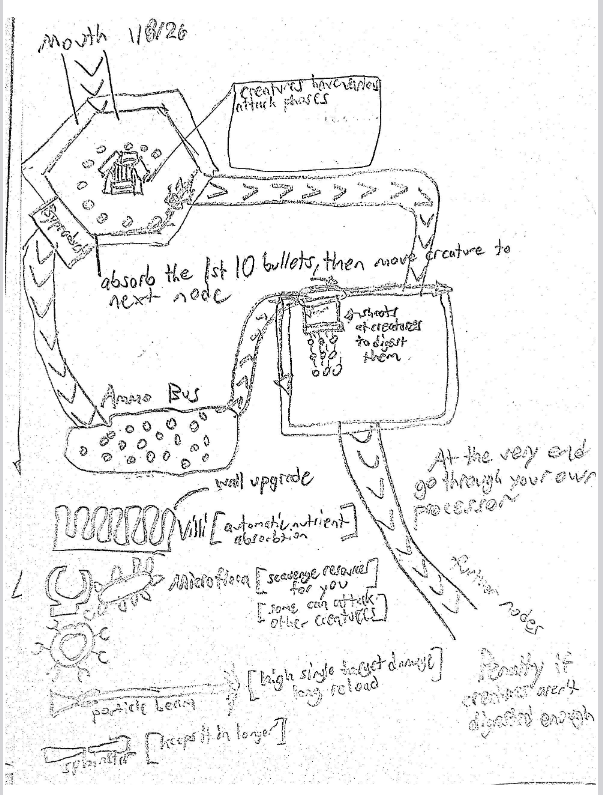 Mouth 1/8/26
creatures have various
attack phases
absorb the 1st 10 bullets, then move creature to
next node
shoots
at creatures
to digest
them
Ammo Bus
At the very end
go through your own
processor
wall upgrade
Villi [automatic nutrient
absorbtion]
Microflora [scavenge resources
for you]
[some can attack
other creatures]
Further nodes
[high single target damage
long reload]
particle beam
Penalty if
creatures aren't
digested enough
sphincter [keeps it in longer]